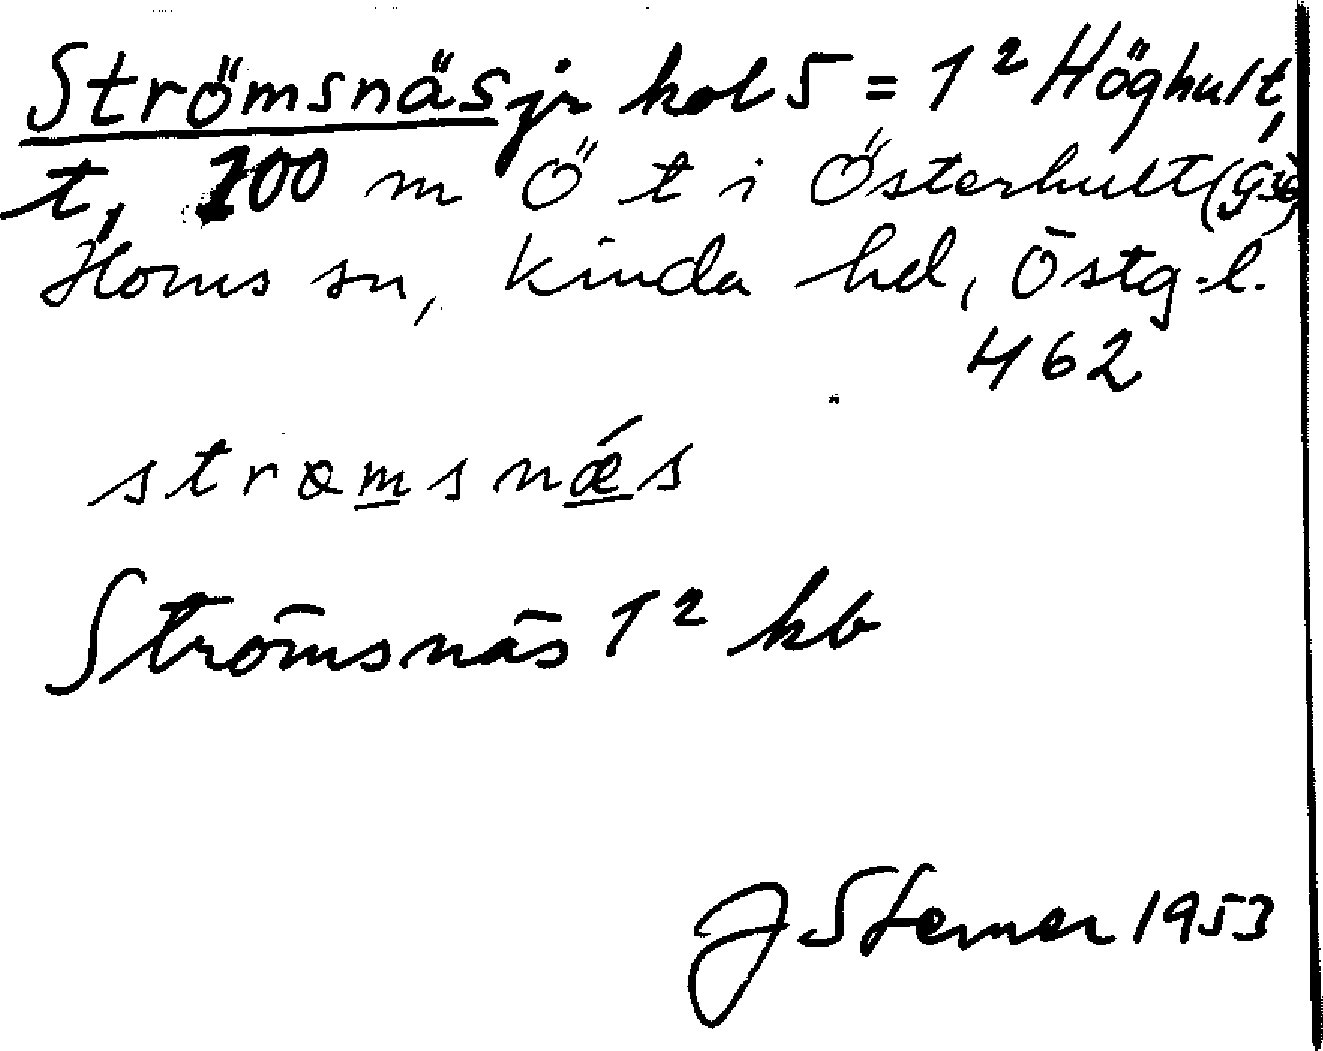 Strömsnäs jr kol 5 = 1² Höghult,
t, 700 m Ö t i Österhult (G36)
Horns sn, Kinda hd, Östg-l.
462
strömsnǽs
Strömsnäs 1² kb
J Sterner 1953